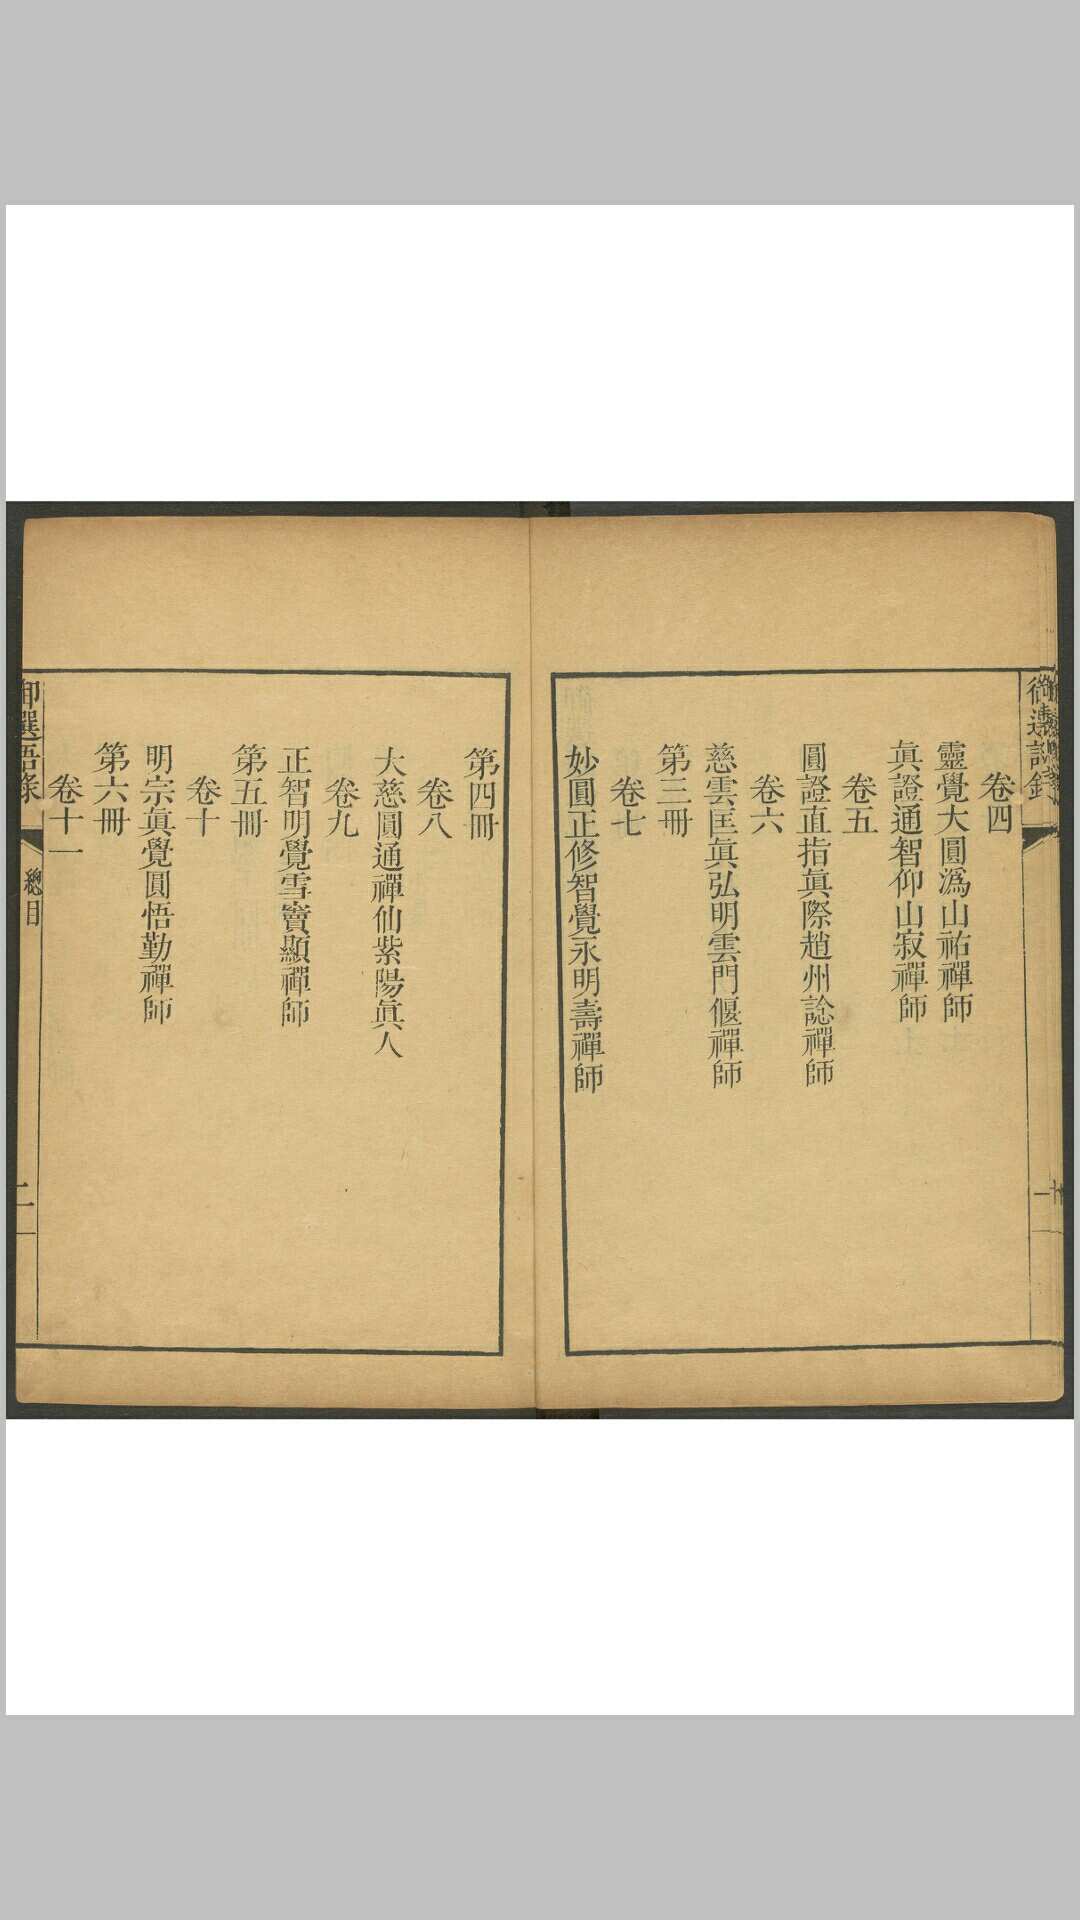 御選語錄
一
卷四
靈覺大圓溈山祐禪師
眞證通智仰山寂禪師
卷五
圓證直指眞際趙州諗禪師
卷六
慈雲匡眞弘明雲門偃禪師
第三冊
卷七
妙圓正修智覺永明壽禪師
第四冊
卷八
大慈圓通禪仙紫陽眞人
卷九
正智明覺雪竇顯禪師
第五冊
卷十
明宗眞覺圓悟勤禪師
第六冊
卷十一
御選語錄
總目
二